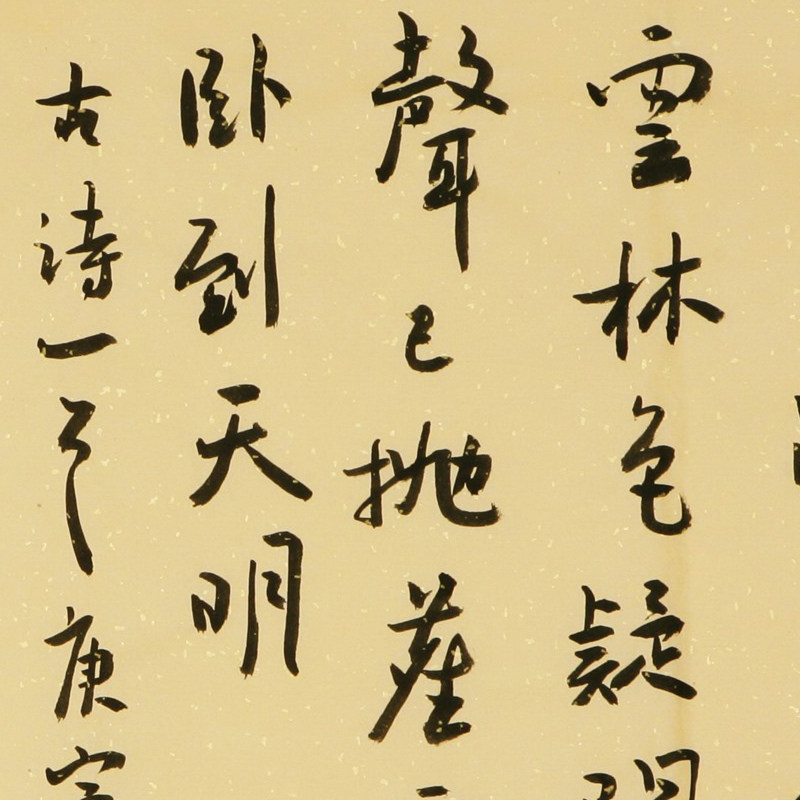 雲林色疑
聲已拋
臥到天明
古詩一
庚